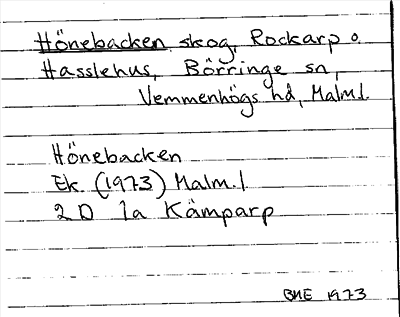 Hönebacken skog, Rockarp o.
Hasslehus, Börringe sn,
Vemmenhögs hd, Malm.l.
Hönebacken
Ek. (1973) Malm.l
2D 1a Kämparp
BME 1973